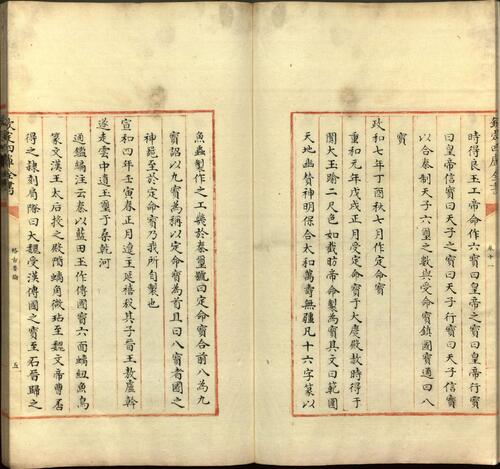 時得良玉工帝命作六寶曰皇帝之寶曰皇帝行寶
曰皇帝信寶曰天子之寶曰天子行寶曰天子信寶
以合秦制天子六璽之數與受命寶鎮國寶通曰八
寶
政和七年丁酉秋七月作定命寶
重和元年戊戌正月受定命寶于大慶殿先時得于
闐大玉踰二尺色如截肪帝命製為寶其文曰範圍
天地幽贊神明保合太和萬壽無疆凡十六字篆以
魚蟲製作之工幾於秦璽號曰定命寶合前八為九
寶詔以九寶為稱以定命寶為首且曰八寶者國之
神器至於定命寶乃我所自製也
宣和四年壬寅春正月遼主延禧殺其子晉王敖盧幹
遂走雲中遺玉璽于桑乾河
通鑑編注云秦以藍田玉作傳國寶六面螭紐魚鳥
篆文漢王太后投之殿階螭角微玷至魏文帝曹丕
得之隸刻肩際曰大魏受漢傳國之寶至石晉歸之
欽定四庫全書
稽古彙編
五